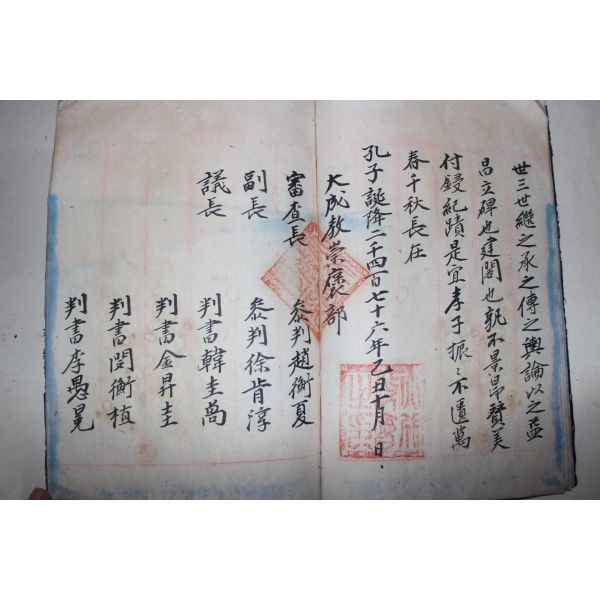 世三世繼之承之傳之輿論以之益
昌立碑也建閣也孰不景昂贊美
付鋟紀蹟是宜孝子振〻不匱萬
春千秋長在
孔子誕降二千四百七十六年乙丑十月 日
大成教崇褒部
審查長 叅判趙衡夏
副長 叅判徐肯淳
議長 判書韓圭卨
判書金昇圭
判書閔衡植
判書李愚冕